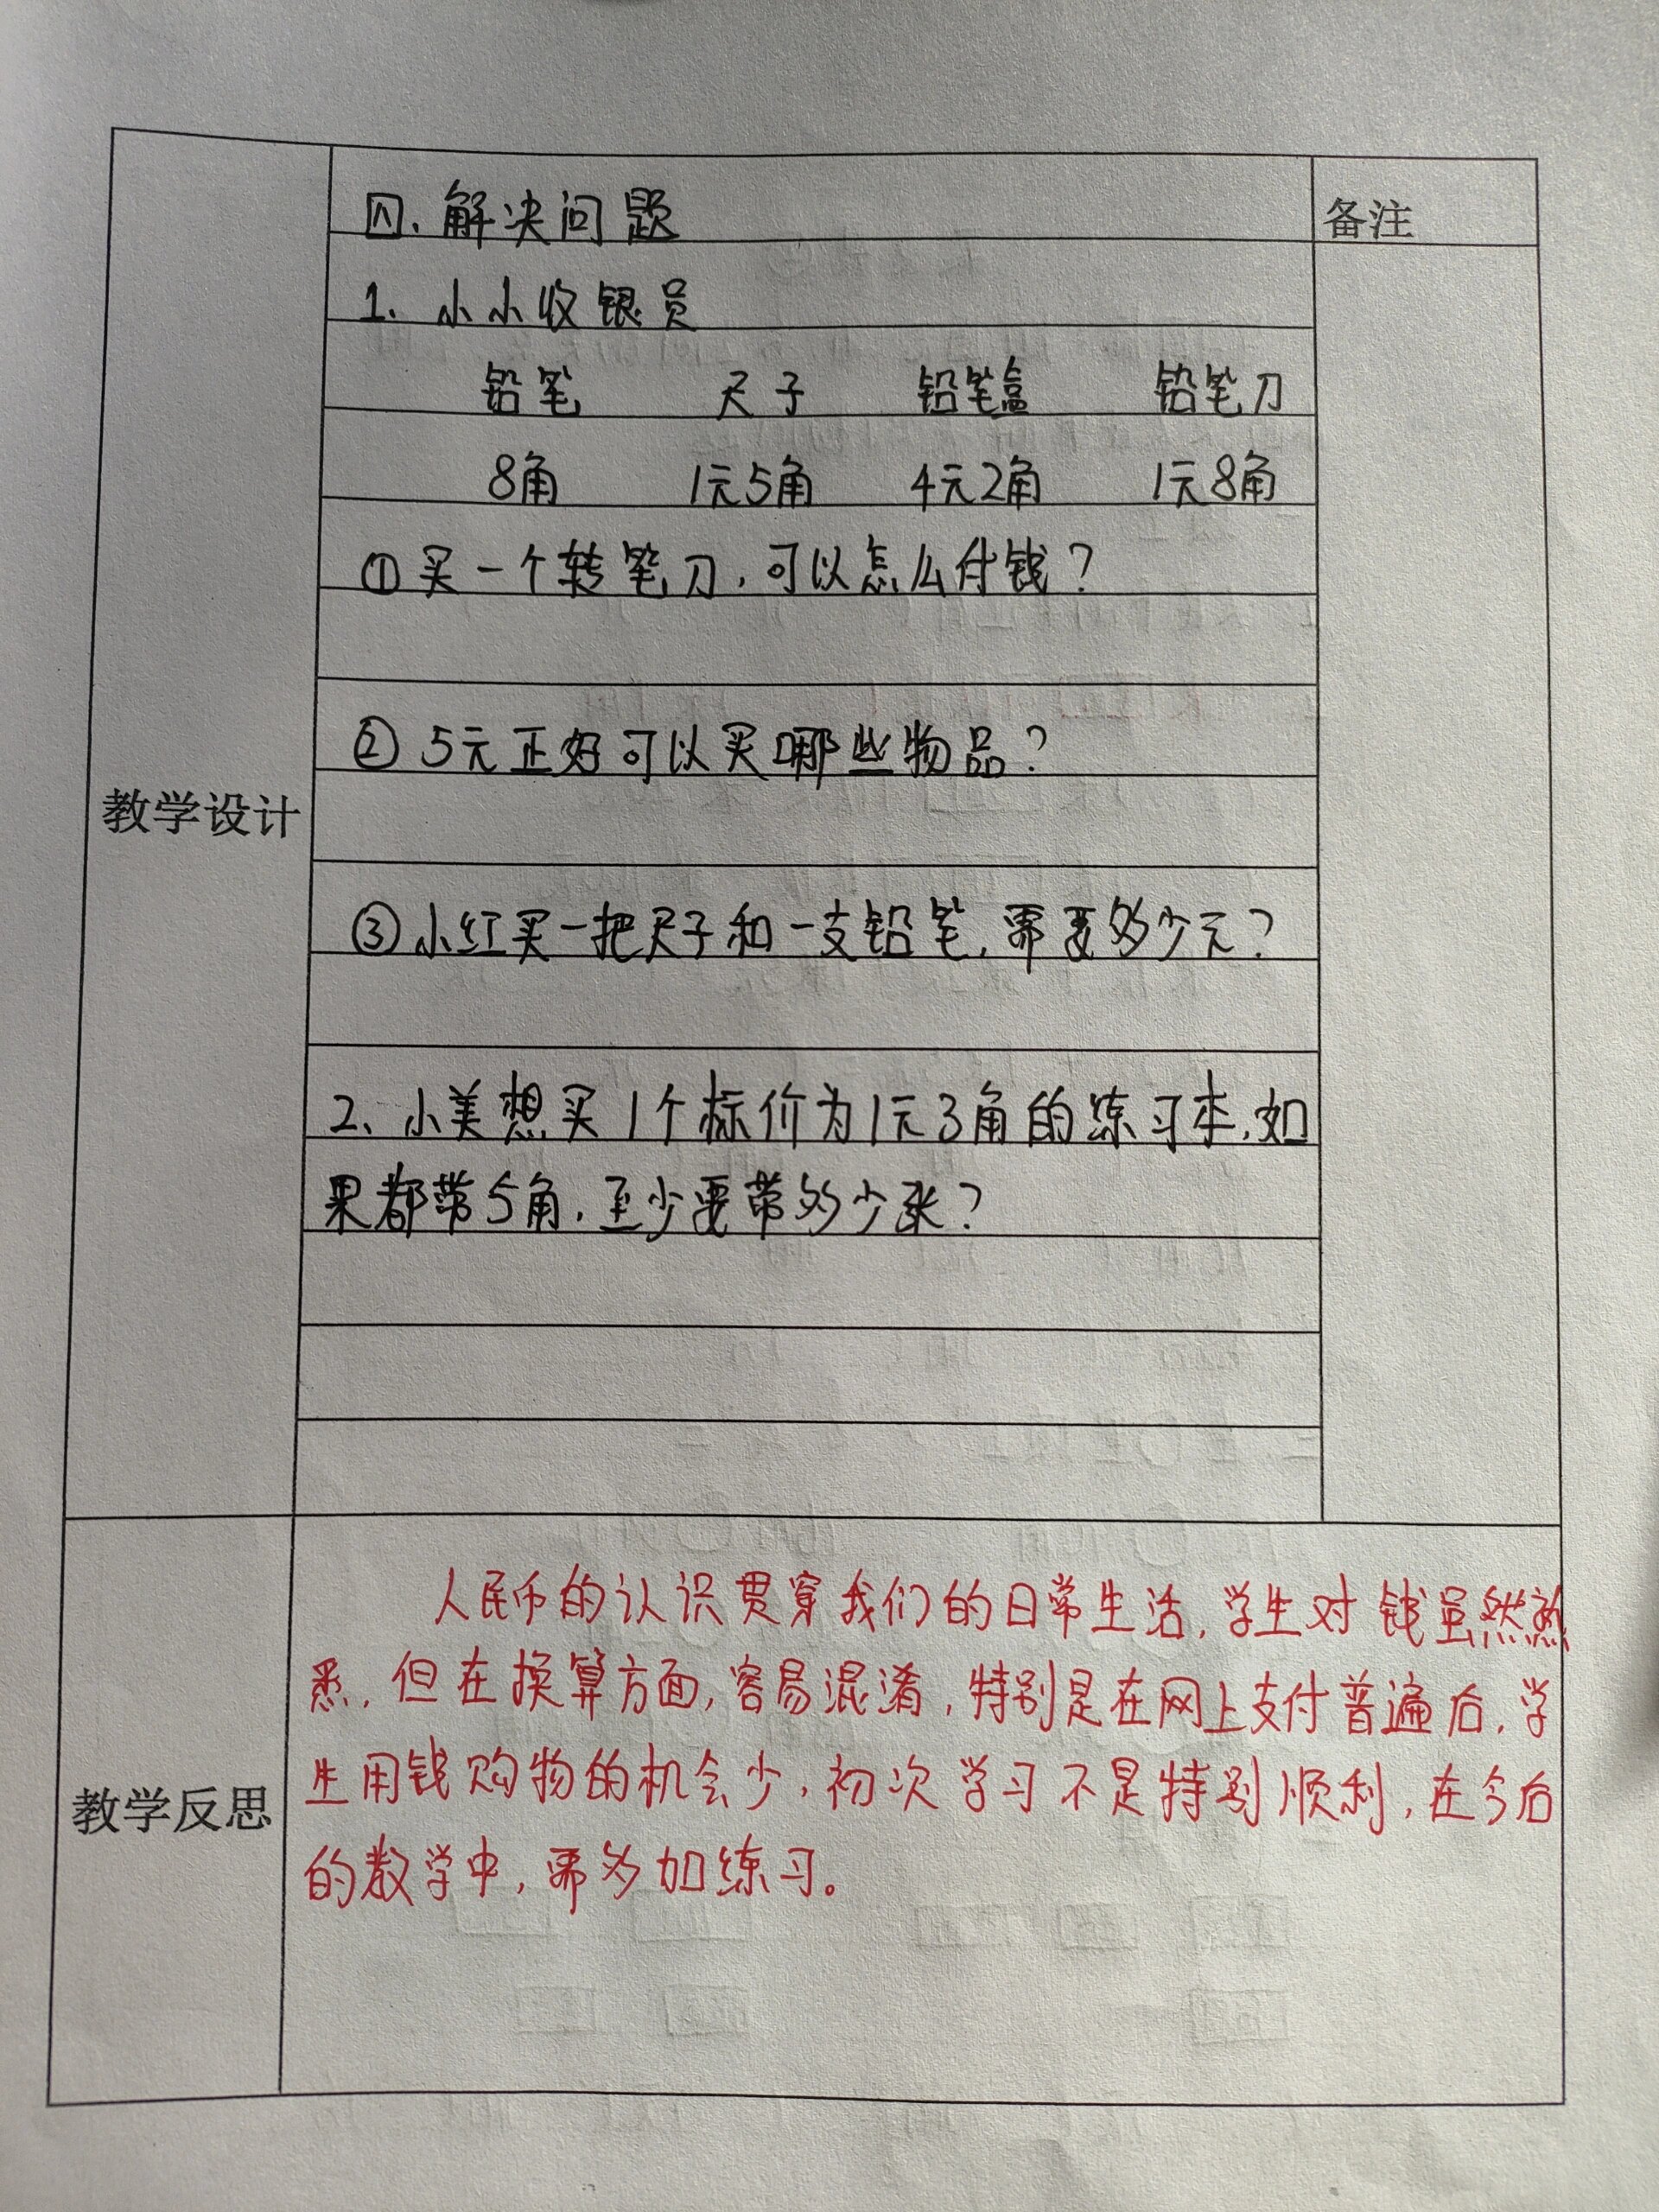 四、解决问题
备注
1、小小收银员
铅笔 尺子 铅笔盒 铅笔刀
8角 1元5角 4元2角 1元8角
①买一个转笔刀,可以怎么付钱?
②5元正好可以买哪些物品?
教学设计
③小红买一把尺子和一支铅笔,需要多少元?
2、小美想买1个标价为1元3角的练习本,如
果都带5角,至少要带多少张?
人民币的认识贯穿我们的日常生活,学生对钱虽然熟
悉,但在换算方面,容易混淆,特别是在网上支付普遍后,学
生用钱购物的机会少,初次学习不是特别顺利,在今后
教学反思
的教学中,需多加练习。